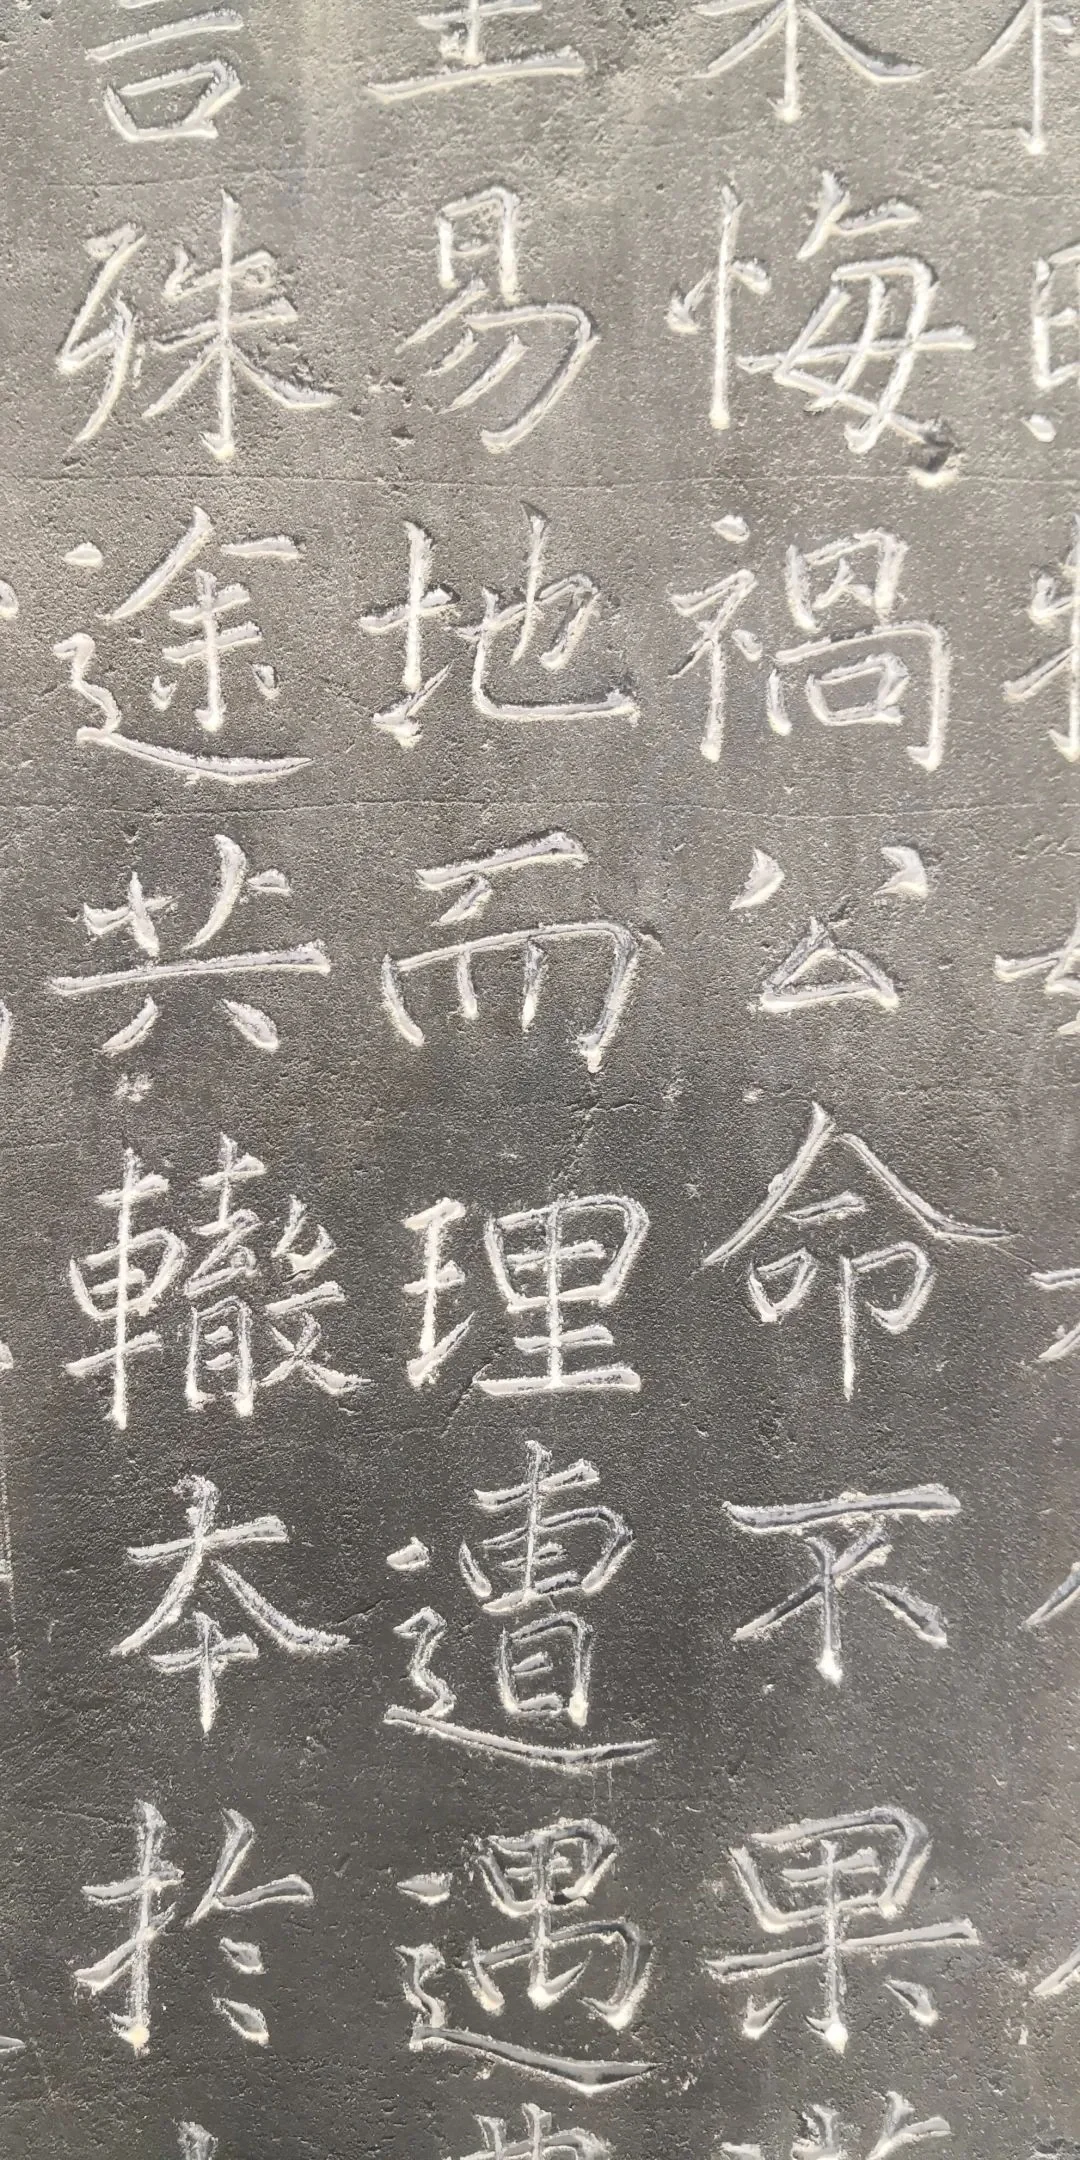 悔禍公命不果
易地而理遭遇
言殊途共轍本於